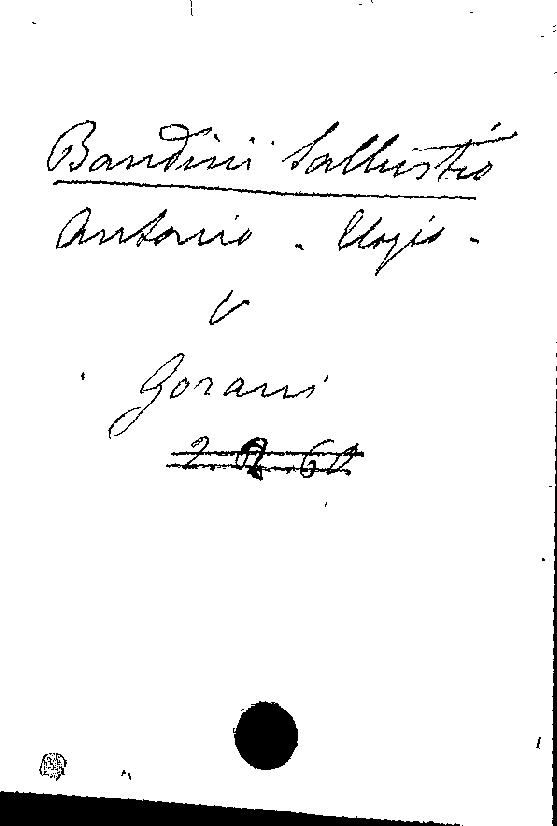 Bandini Sallustio
Antonio - Elogio -
V
Gorani